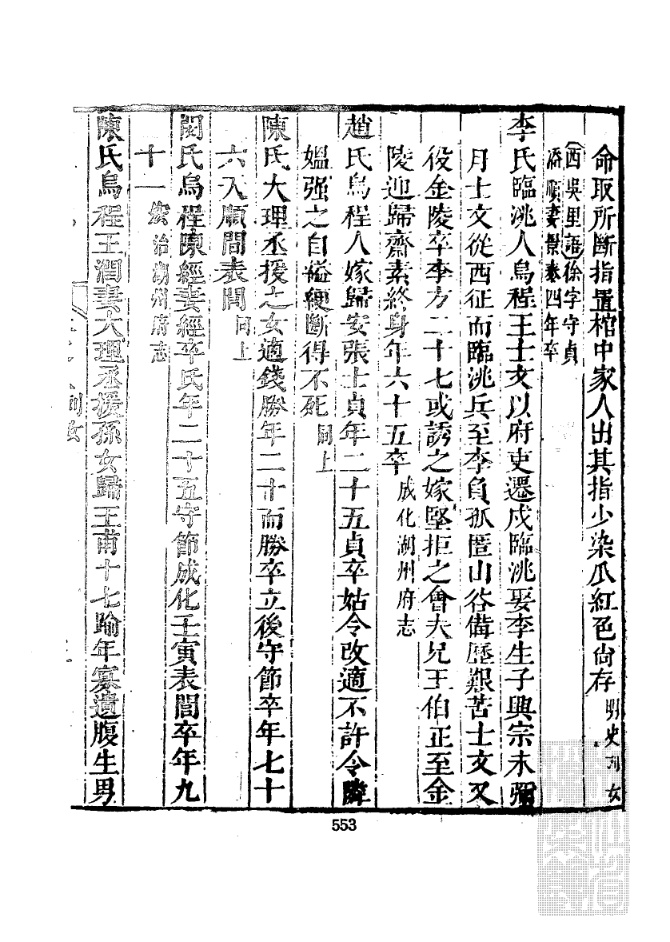 命取所斷指置棺中家人出其指少染瓜紅色尙存 明史列女
西吳里語徐字守貞
添順妻景泰四年卒
李氏臨洮人烏程王士文以府吏遷戍臨洮娶李生子興宗未彌
月士文從西征而臨洮兵至李負孤匿山谷備歷艱苦士文又
役金陵卒李方二十七或誘之嫁堅拒之會大兄王伯正至金
陵迎歸齋素終身年六十五卒 成化湖州府志
趙氏烏程人嫁歸安張士貞年二十五貞卒姑令改適不許令隣
媼强之自縊繩斷得不死 同上
陳氏大理丞援之女適錢勝年二十而勝卒立後守節卒年七十
六入願問表閭 同上
閔氏烏程陳經妻經卒氏年二十五守節成化壬寅表閭卒年九
十一 湖州府志
陳氏烏程王潤妻大理丞援孫女歸王甫十七踰年寡遺腹生男
553